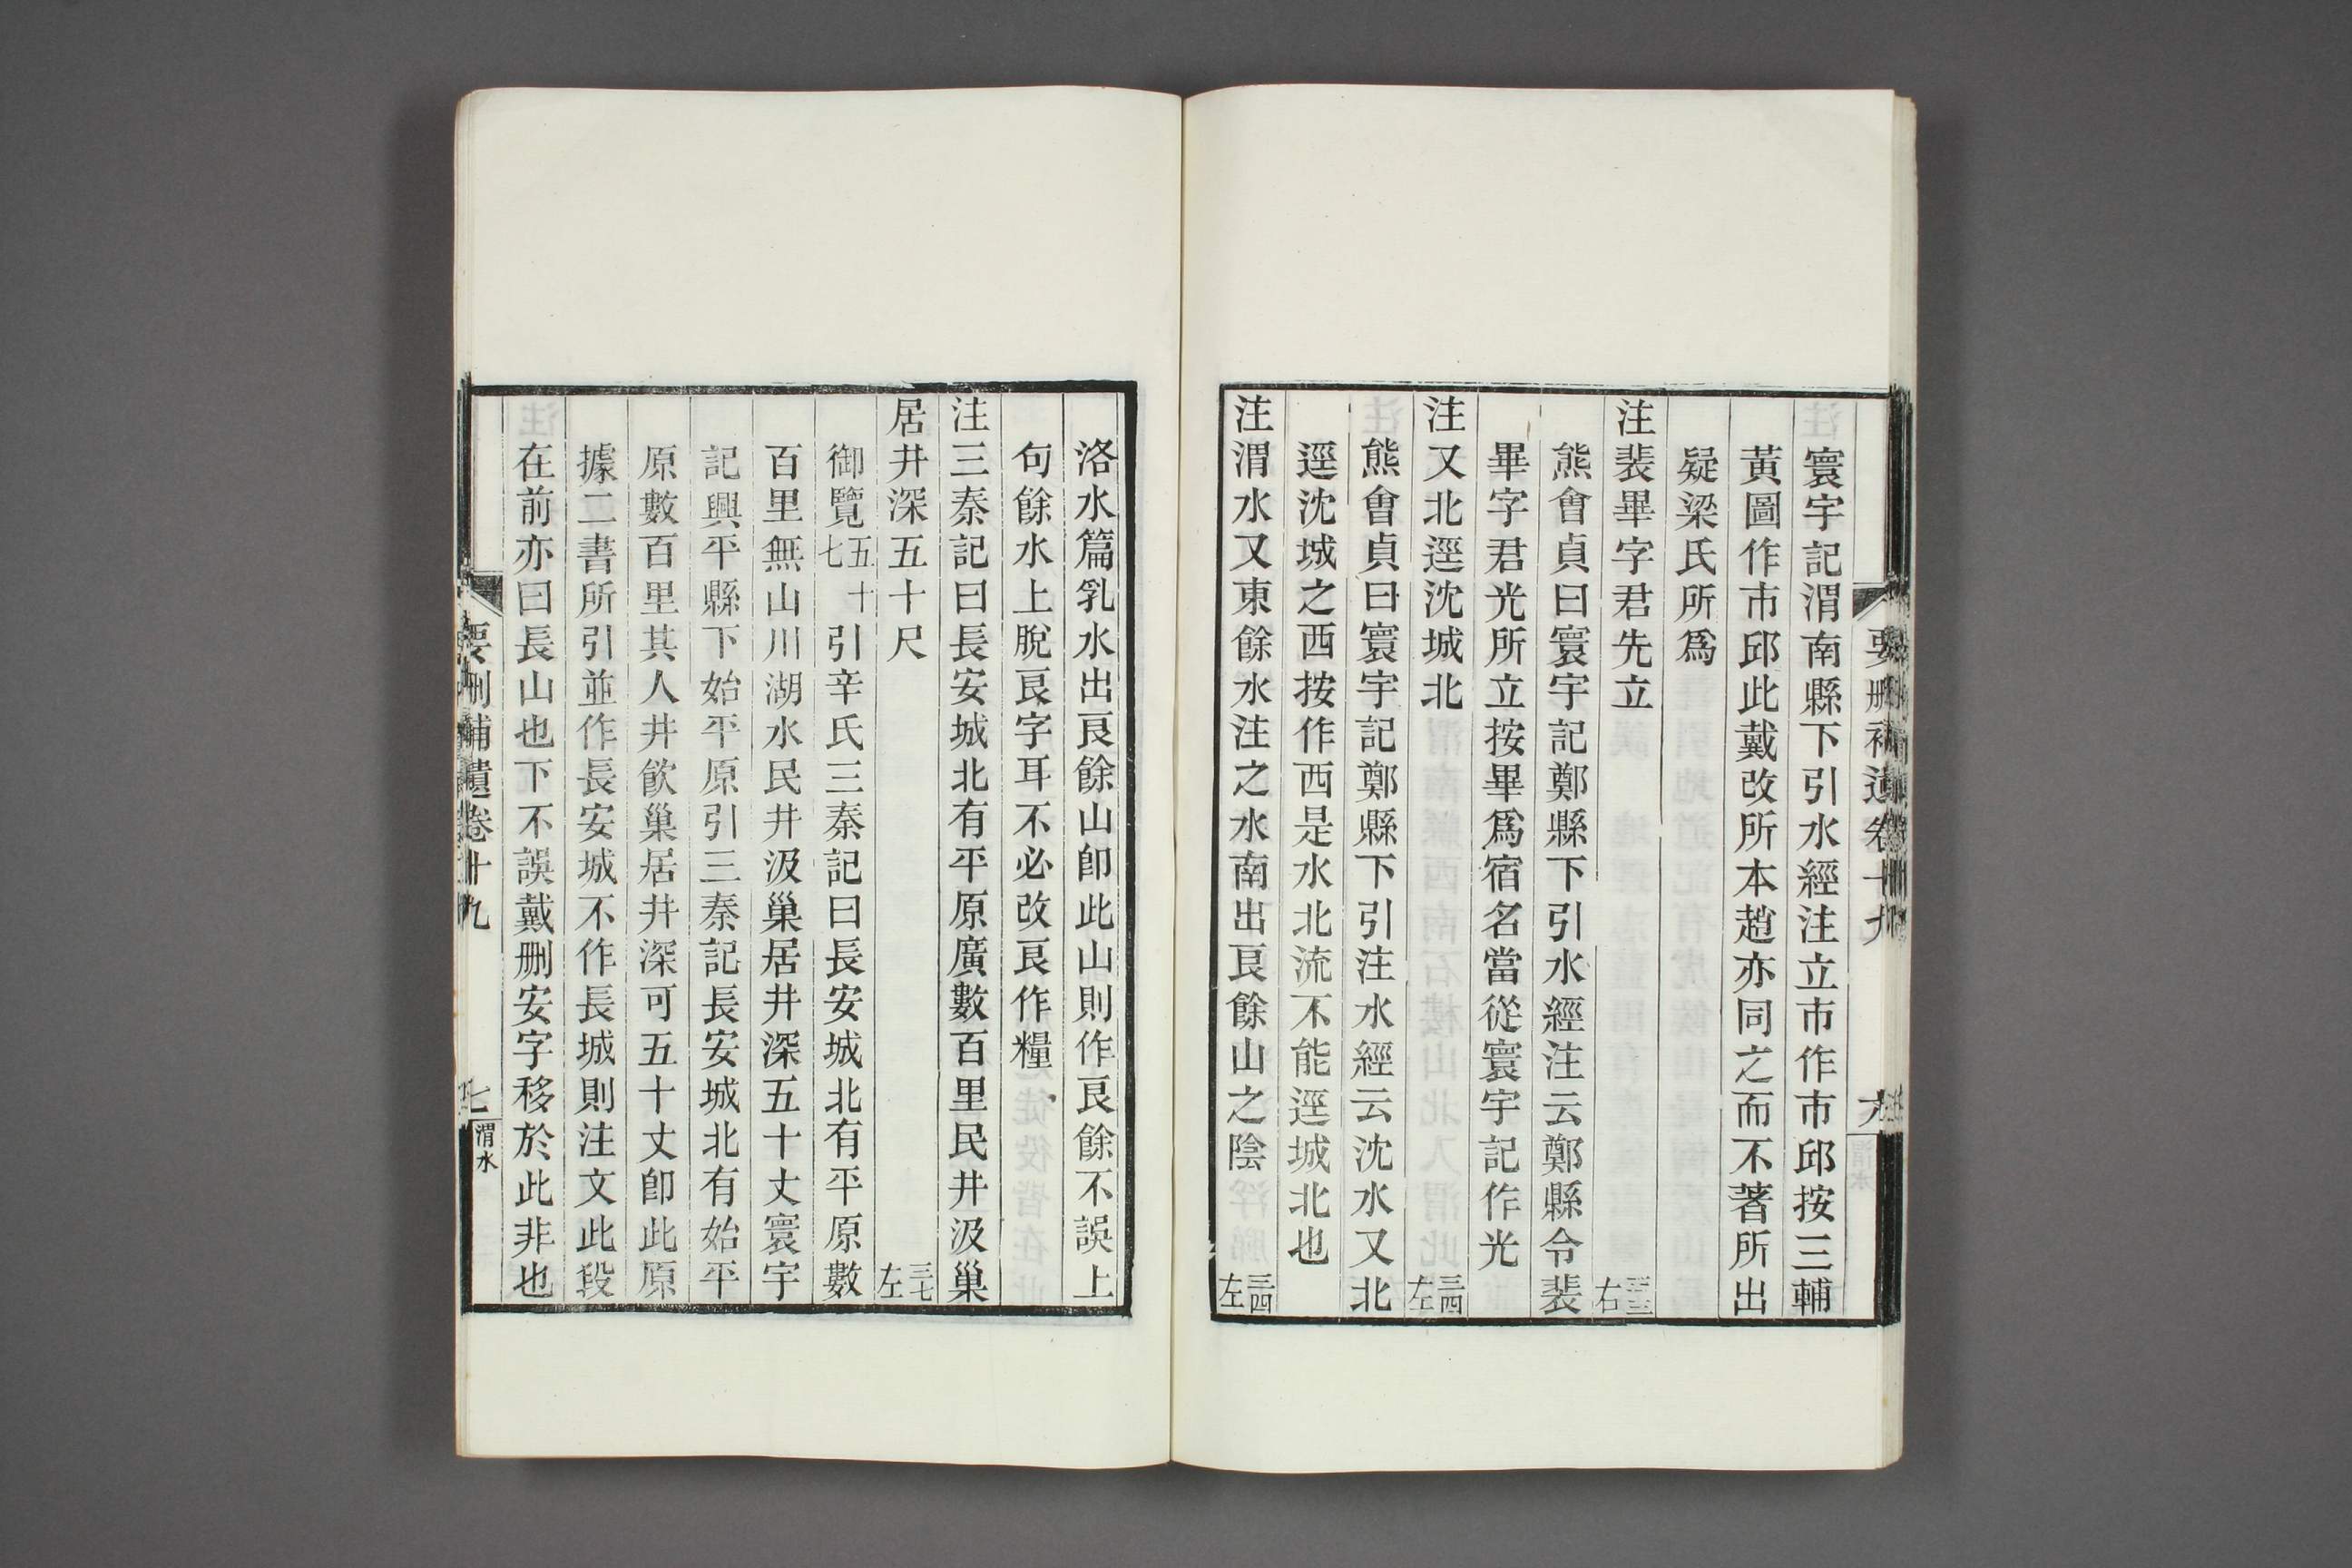 寰宇記渭南縣下引水經注立市作市邱按三輔
黃圖作市邱此戴改所本趙亦同之而不著所出
疑梁氏所爲
注裴畢字君先立 三三右
熊會貞曰寰宇記鄭縣下引水經注云鄭縣令裴
畢字君光所立按畢爲宿名當從寰宇記作光
注又北逕沈城北 三四左
熊會貞曰寰宇記鄭縣下引注水經云沈水又北
逕沈城之西按作西是水北流不能逕城北也
注渭水又東餘水注之水南出艮餘山之陰 三四左
洛水篇乳水出艮餘山卽此山則作艮餘不誤上
句餘水上脫艮字耳不必改艮作糧
注三秦記曰長安城北有平原廣數百里民井汲巢
居井深五十尺 三七左
御覽五十七引辛氏三秦記曰長安城北有平原數
百里無山川湖水民井汲巢居井深五十丈寰宇
記興平縣下始平原引三秦記長安城北有始平
原數百里其人井飮巢居井深可五十丈卽此原
據二書所引並作長安城不作長城則注文此段
在前亦曰長山也下不誤戴刪安字移於此非也
要刪補遺卷十九
七
渭水